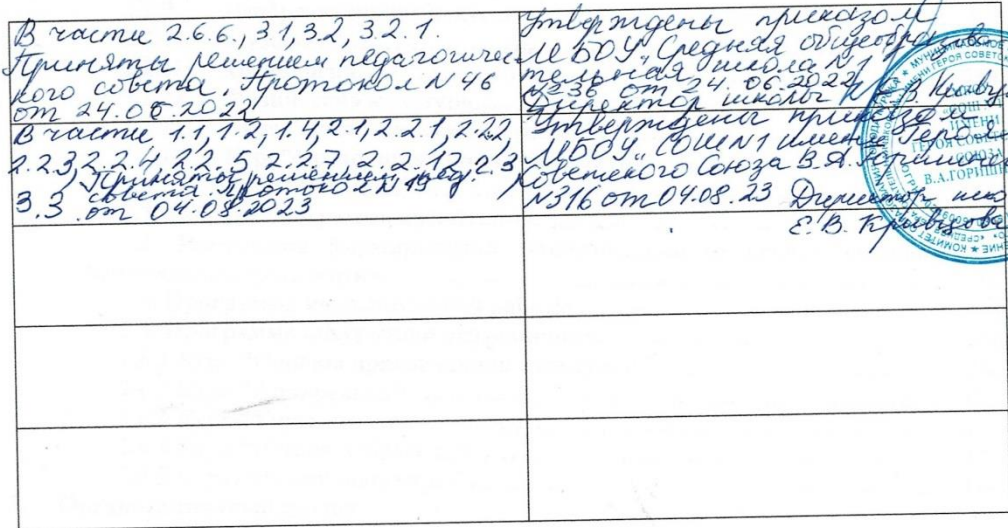 В части 2.6.6., 3.1, 3.2, 3.2.1.
Приняты решением педагогичес
кого совета, Протокол N 46
от 24.06.2022
Утверждены приказом
МБОУ "Средняя общеобразова
тельная школа N 1"
N 236 от 24.06.2022
Директор школы Е.В. Кривцова
В части 1.1, 1.2, 1.4, 2.1, 2.2.1, 2.2.2,
2.2.3, 2.2.4, 2.2.5, 2.2.7, 2.2.12, 2.3
Приняты решением пед.
совета протокол N 19
3.3 от 04.08.2023
Утверждены приказом
МБОУ "СОШ N1 имени Героя
Советского Союза В.А. Горишнего
N316 от 04.08.23 Директор
Е.В. Кривцова
СОШ
ИМЕНИ
ГЕРОЯ СОВЕТ
СОЮЗА
В.А.ГОРИШН